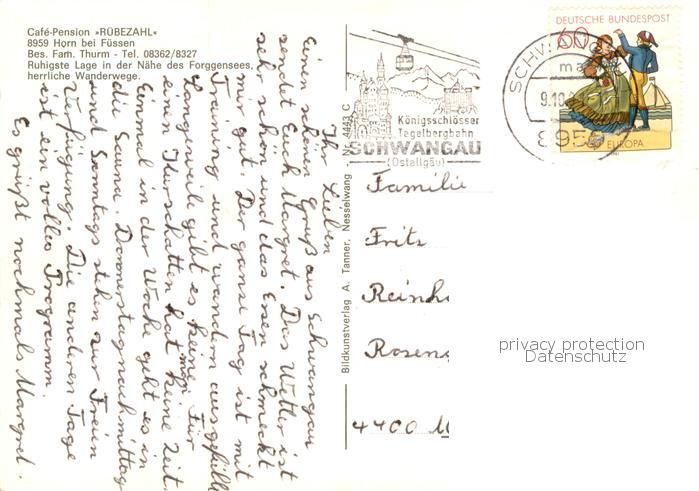 Café-Pension »RÜBEZAHL«
8959 Horn bei Füssen
Bes. Fam. Thurm - Tel. 08362/8327
Ruhigste Lage in der Nähe des Forggensees,
herrliche Wanderwege.
Ihr Lieben
Einen schönen Gruß aus Schwangau
sendet Euch Margret. Das Wetter ist
sehr schön und das Essen schmeckt
mir gut. Der ganze Tag ist mit
Training und wandern ausgefüllt
Langeweile gibt es keine. Für
einen Kurschatten hat man keine Zeit.
Einmal in der Woche geht es in
die Sauna. Donnerstagnachmittag
und Sonntags stehen zur freien
Verfügung. Die anderen Tage
ist ein volles Programm.
Es grüßt nochmals Margret.
Bildkunstverlag A. Tanner, Nesselwang Nr. 4443 C
Königsschlösser
Tegelbergbahn
SCHWANGAU
(Ostallgäu)
SCHW
9.10.
895
DEUTSCHE BUNDESPOST
60
EUROPA
Familie
Fritz
Reinh
Rosen
4400 M
privacy protection
Datenschutz